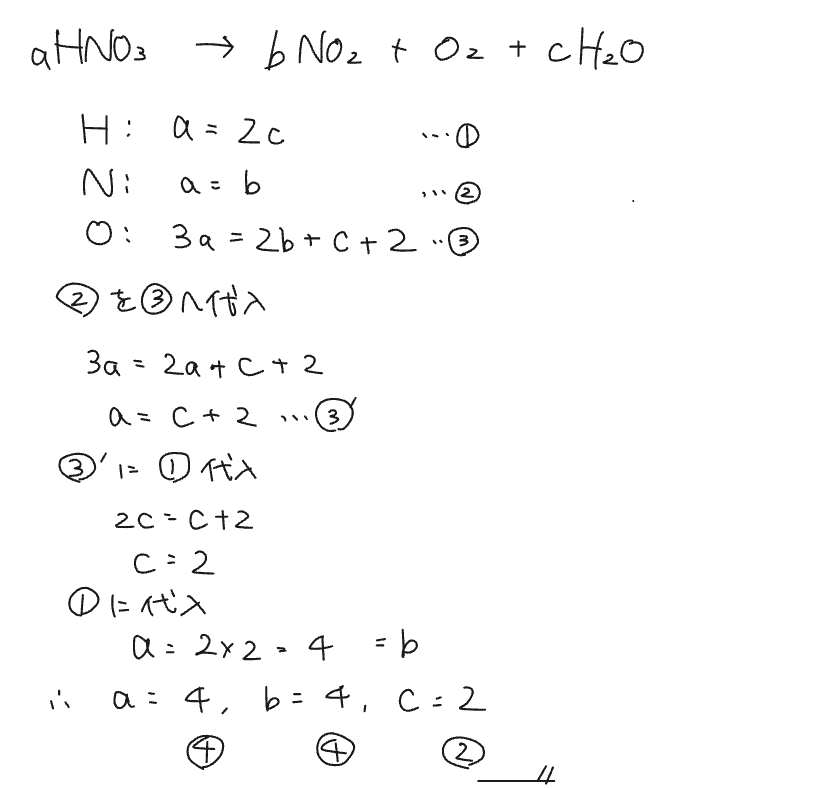 aHNO₃ → bNO₂ + O₂ + cH₂O
H: a = 2c …①
N: a = b …②
O: 3a = 2b + c + 2 …③
②を③へ代入
3a = 2a + c + 2
a = c + 2 …③′
③′に①代入
2c = c + 2
c = 2
①に代入
a = 2×2 = 4 = b
∴ a = 4, b = 4, c = 2
④ ④ ②